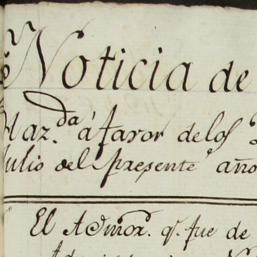 Noticia de
Haz.da á favor de los
Julio del presente año
El Admor. q.e fue de